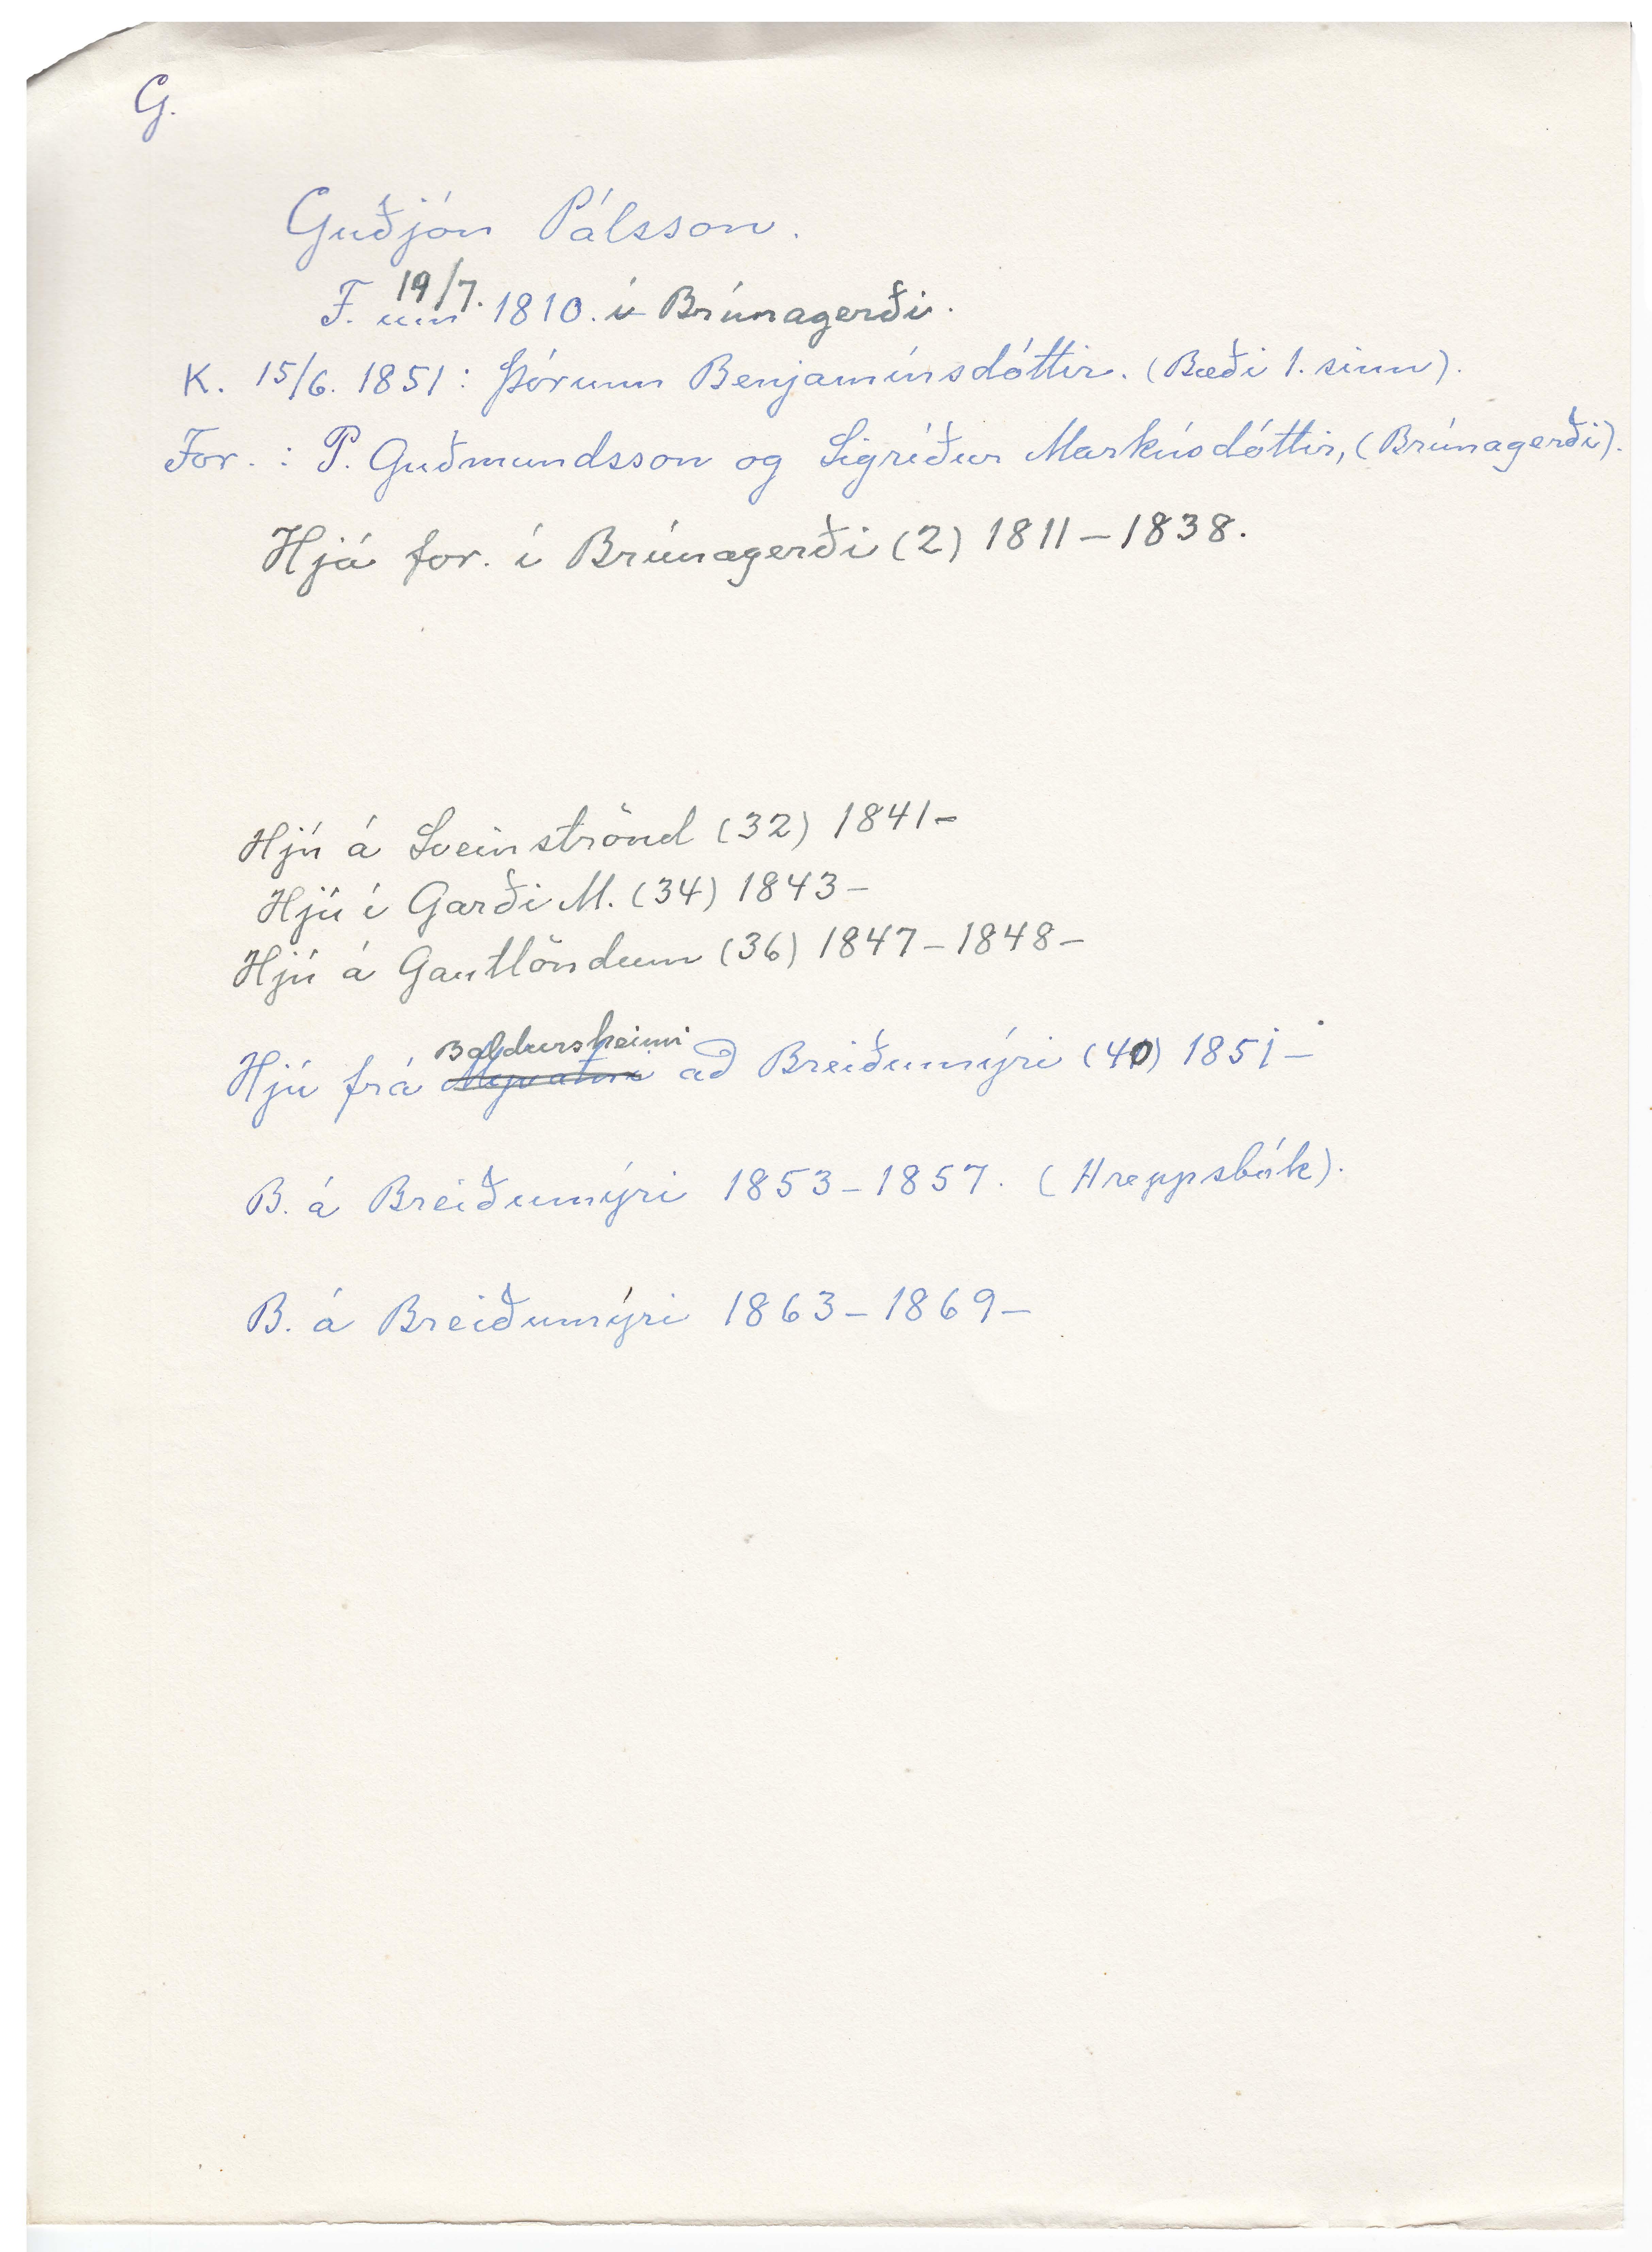 G.
Guðjón Pálsson.
F. um 19/7. 1810. í Brúnagerði.
K. 15/6. 1851: Þórunn Benjamínsdóttir. (Bæði 1. sinn).
For.: P. Guðmundsson og Sigríður Markúsdóttir, (Brúnagerði).
Hjá for. í Brúnagerði (2) 1811-1838.
Hjú á Sveinströnd (32) 1841-
Hjú í Garði M. (34) 1843-
Hjú á Gautlöndum (36) 1847-1848-
Baldursheimi
Hjú frá Mývatni að Breiðumýri (40) 1851-
B. á Breiðumýri 1853-1857. (Hreppsbók).
B. á Breiðumýri 1863-1869-